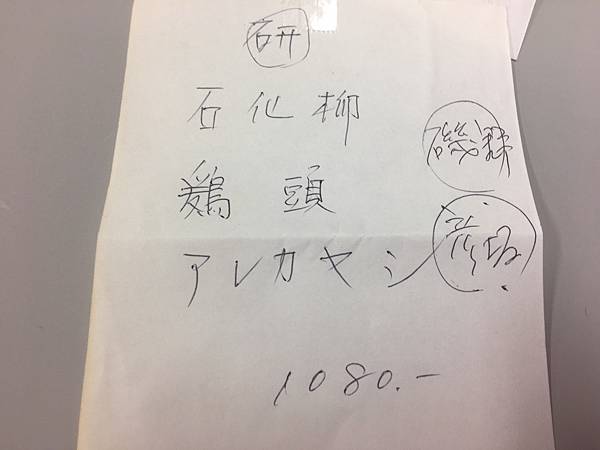 研
石化柳
鶏頭
アレカヤシ
磯
1080.-